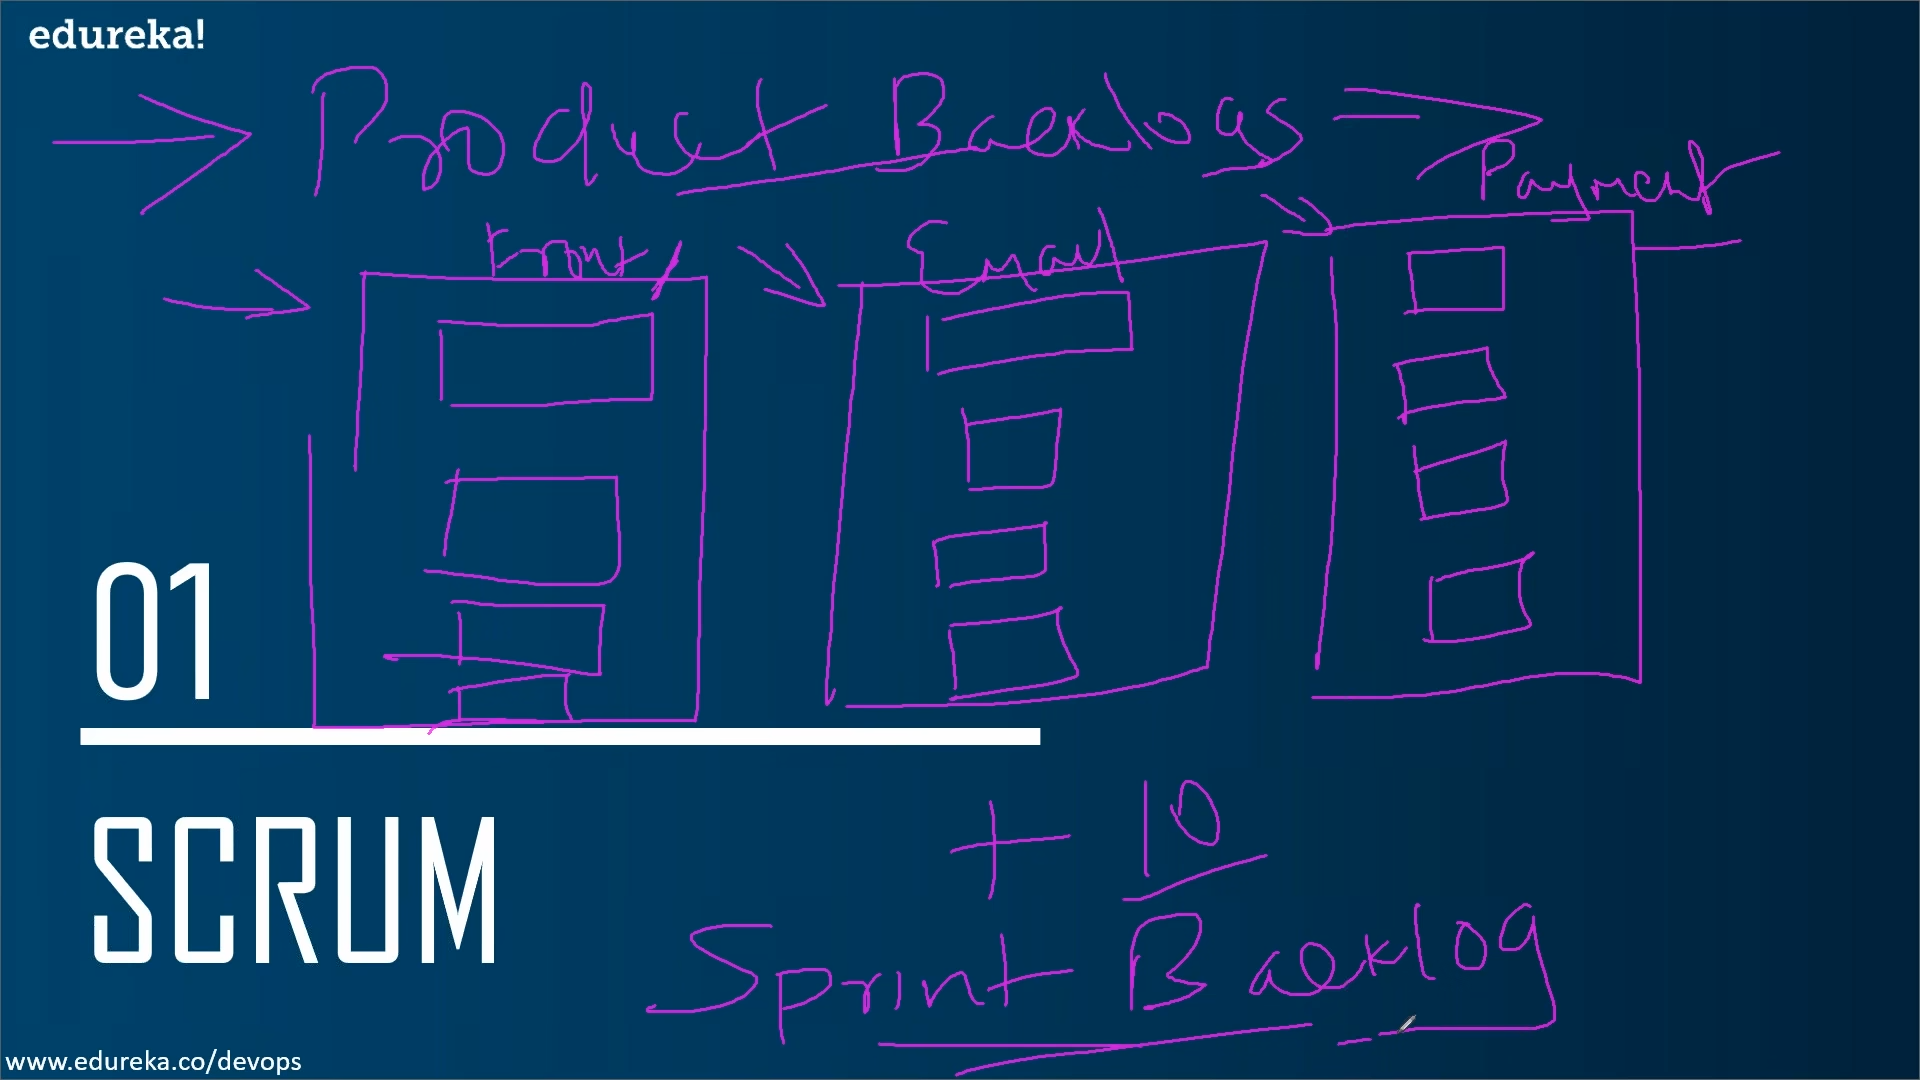 edureka!
Product Backlogs
Payment
Front
Email
01
+ 10
SCRUM
Sprint Backlog
www.edureka.co/devops